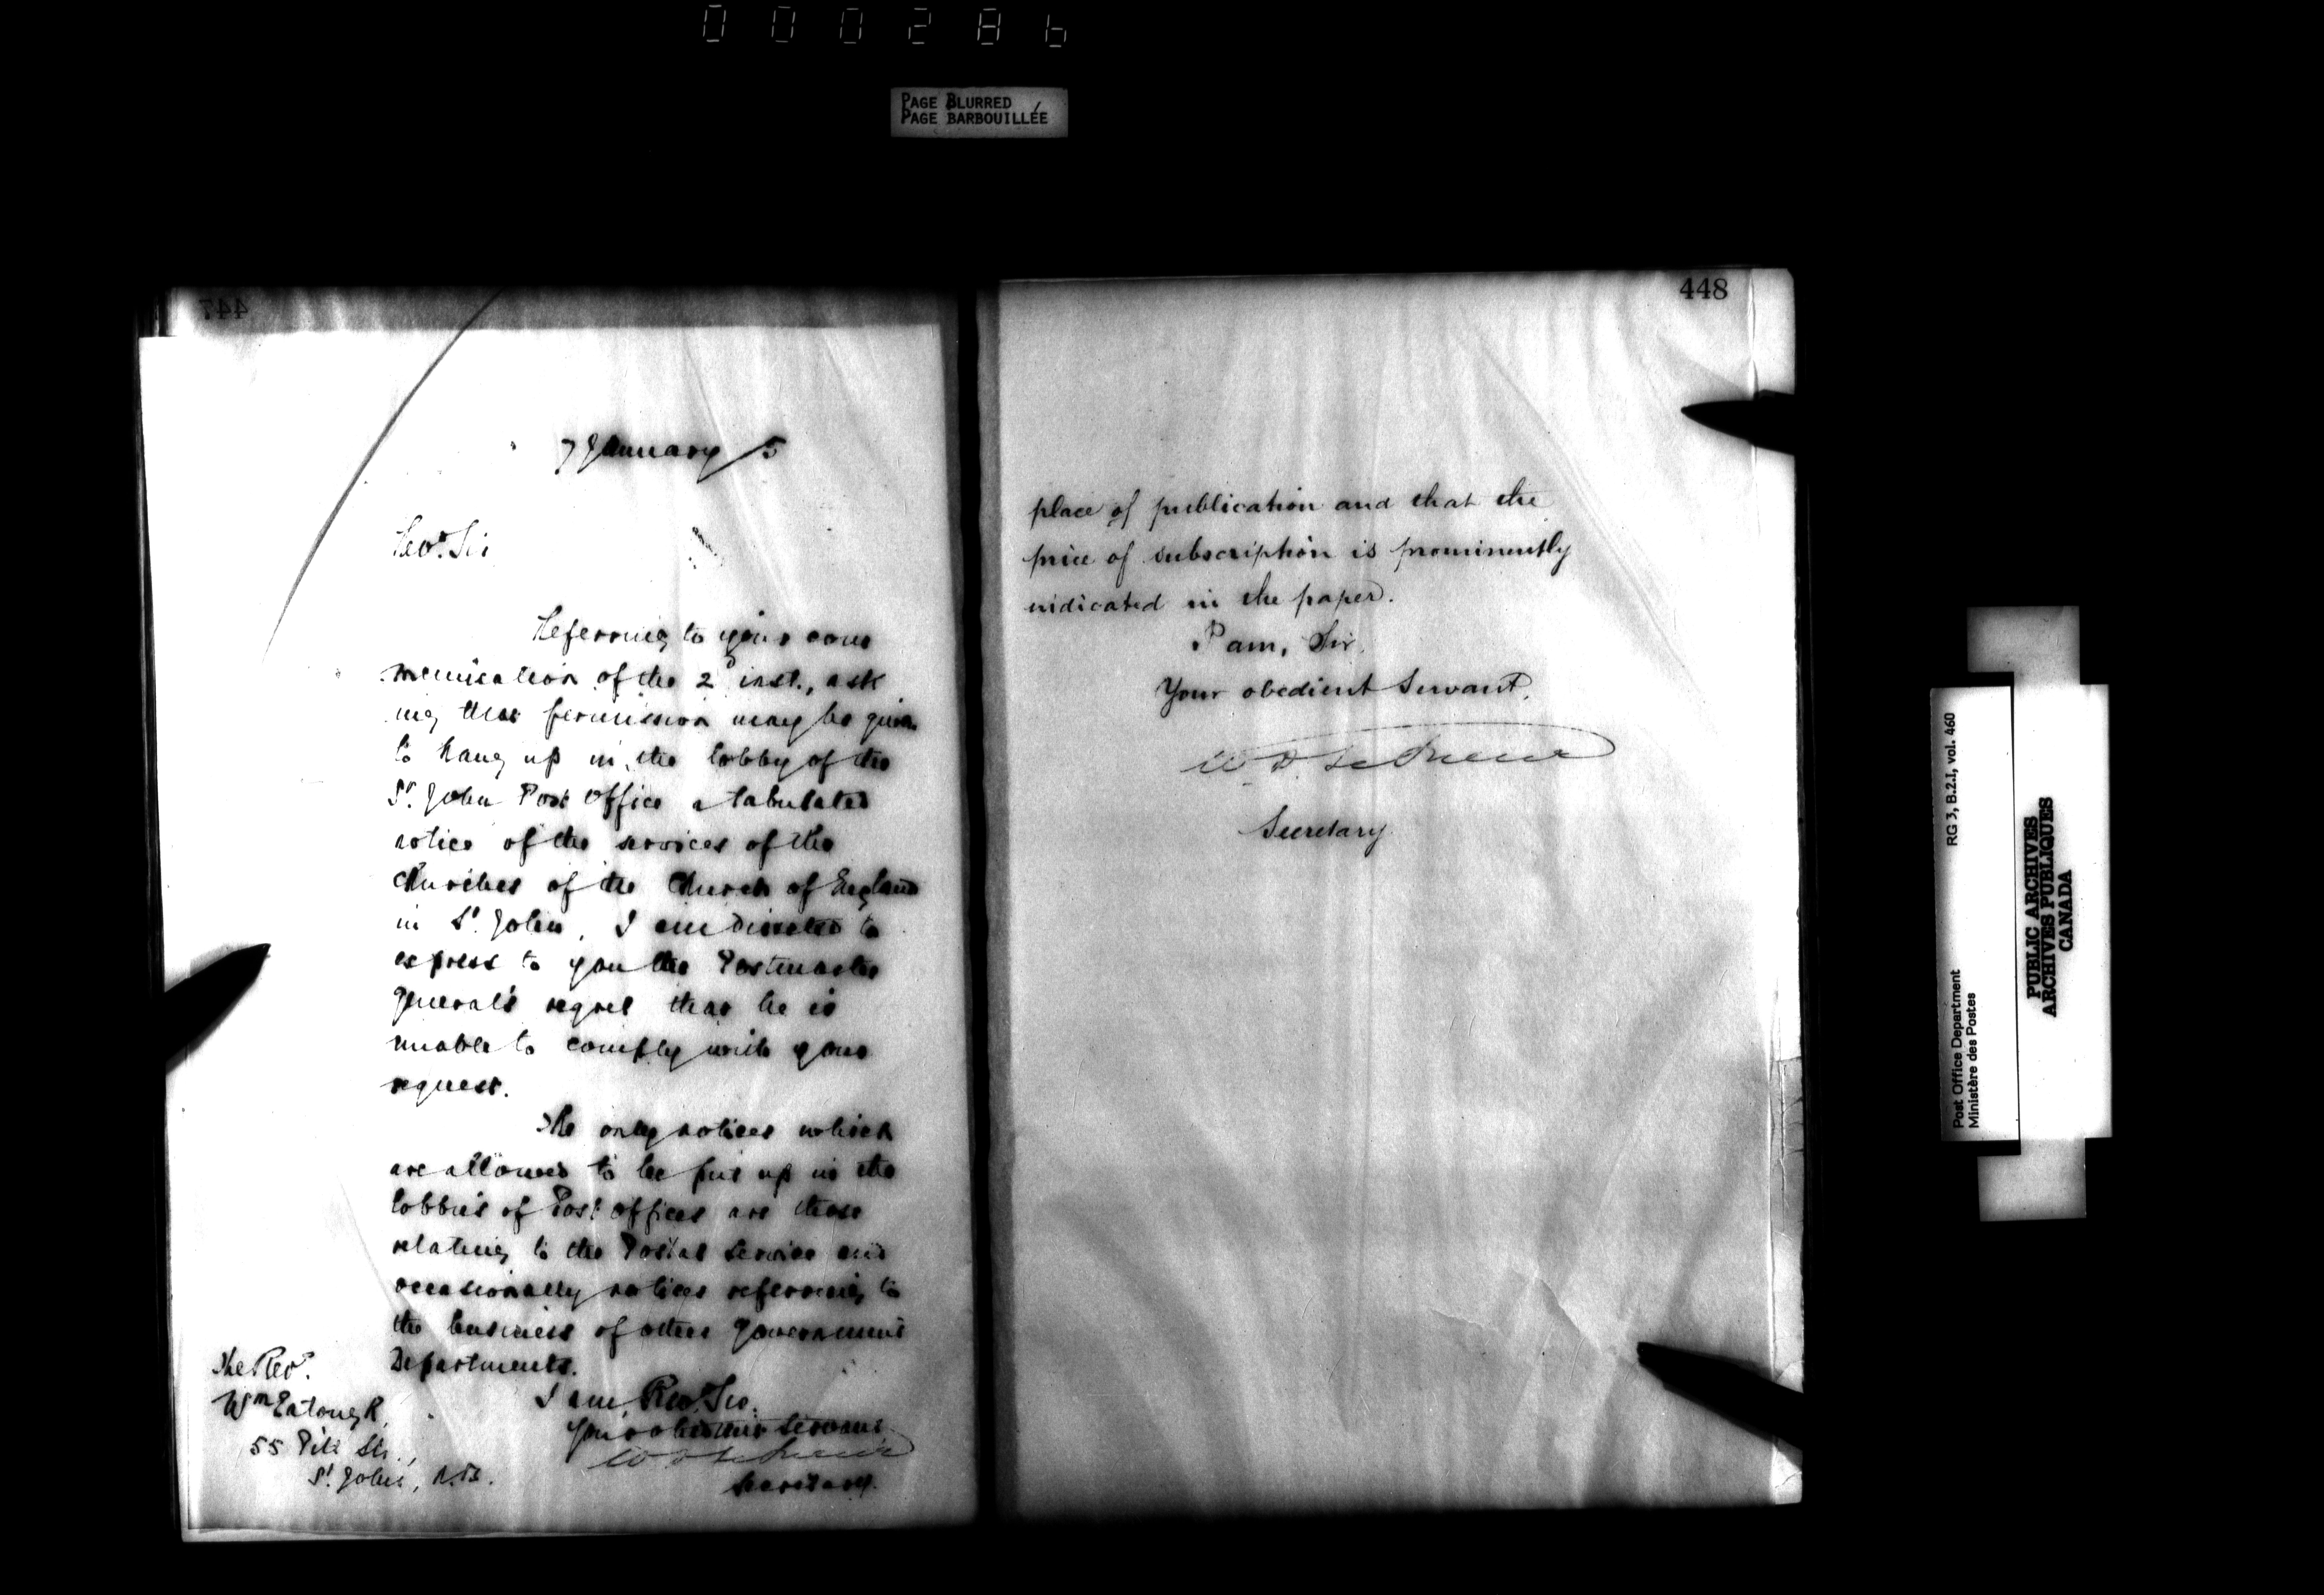 000286
PAGE BLURRED
PAGE BARBOUILLÉE
447
7 January /5
Revd. Sir
Referring to your com
munication of the 2d inst., ask
ing that permission may be given
to hang up in the lobby of the
St. John Post Office a tabulated
notice of the services of the
Churches of the Church of England
in St. John, I am directed to
express to you the Postmaster
General's regret that he is
unable to comply with your
request.
The only notices which
are allowed to be put up in the
lobbies of Post Offices are those
relating to the Postal Service and
occasionally notices referring to
the business of other Government
Departments.
I am, Revd. Sir,
Your obedient Servant
Secretary.
The Revd.
Wm
55 Pitt St.,
St. John, N.B.
448
place of publication and that the
price of subscription is prominently
indicated in the paper.
I am, Sir,
Your obedient Servant,
Secretary
Post Office Department
Ministère des Postes
RG 3, B.2.I, vol. 460
PUBLIC ARCHIVES
ARCHIVES PUBLIQUES
CANADA